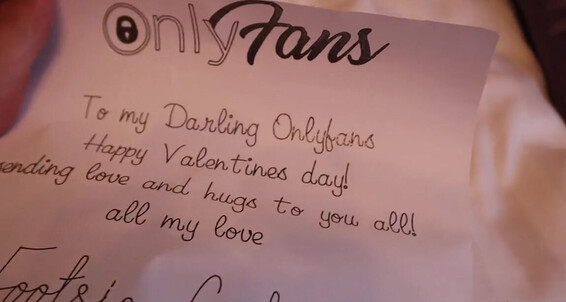 OnlyFans
To my Darling Onlyfans
Happy Valentines day!
sending love and hugs to you all!
all my love